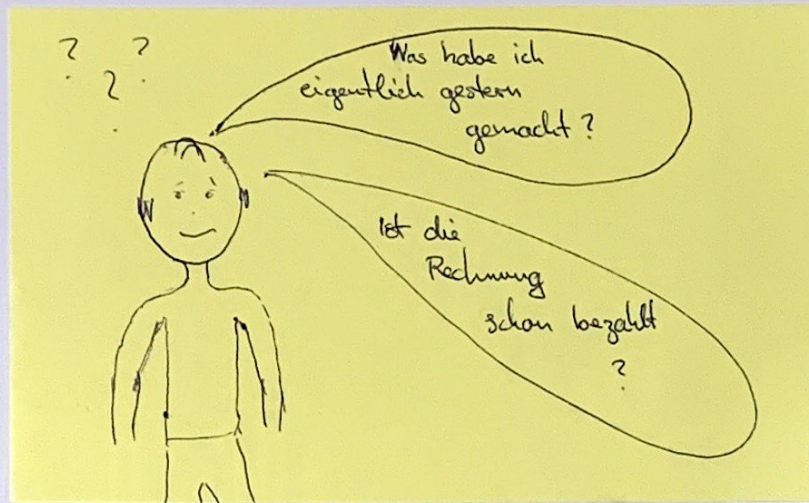 ? ?
?
Was habe ich
eigentlich gestern
gemacht?
Ist die
Rechnung
schon bezahlt
?